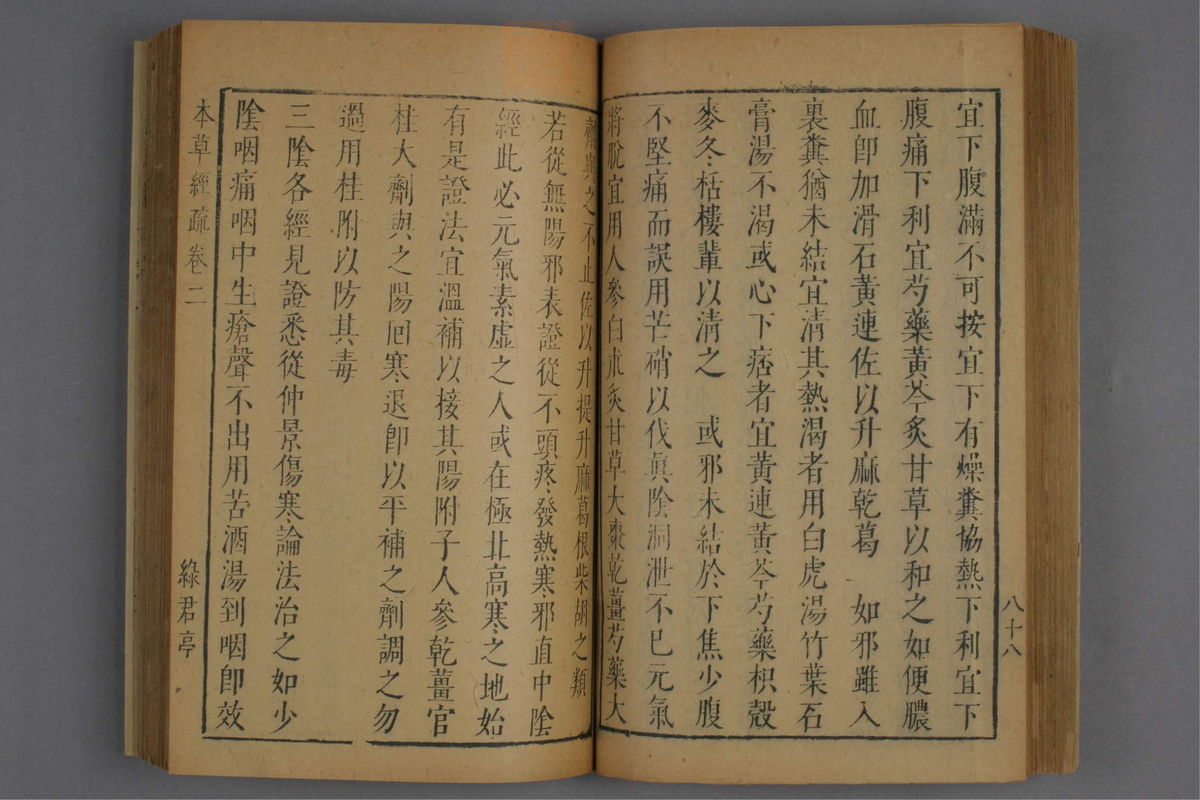 宜下腹滿不可按宜下有燥糞協熱下利宜下
腹痛下利宜芍藥黃芩炙甘草以和之如便膿
血卽加滑石黃連佐以升麻乾葛　如邪雖入
裏糞猶未結宜淸其熱渴者用白虎湯竹葉石
膏湯不渴或心下痞者宜黃連黃芩芍藥枳殼
麥冬栝樓輩以淸之　或邪未結於下焦少腹
不堅痛而誤用芒硝以伐眞陰洞泄不已元氣
將脫宜用人參白朮炙甘草大棗乾薑芍藥大
劑與之不止佐以升提升麻葛根柴胡之類
若從無陽邪表證從不頭疼發熱寒邪直中陰
經此必元氣素虛之人或在極北高寒之地始
有是證法宜溫補以接其陽附子人參乾薑官
桂大劑與之陽囘寒退卽以平補之劑調之勿
過用桂附以防其毒
三陰各經見證悉從仲景傷寒論法治之如少
陰咽痛咽中生瘡聲不出用苦酒湯到咽卽效
本草經疏 卷二
綠君亭
八十八